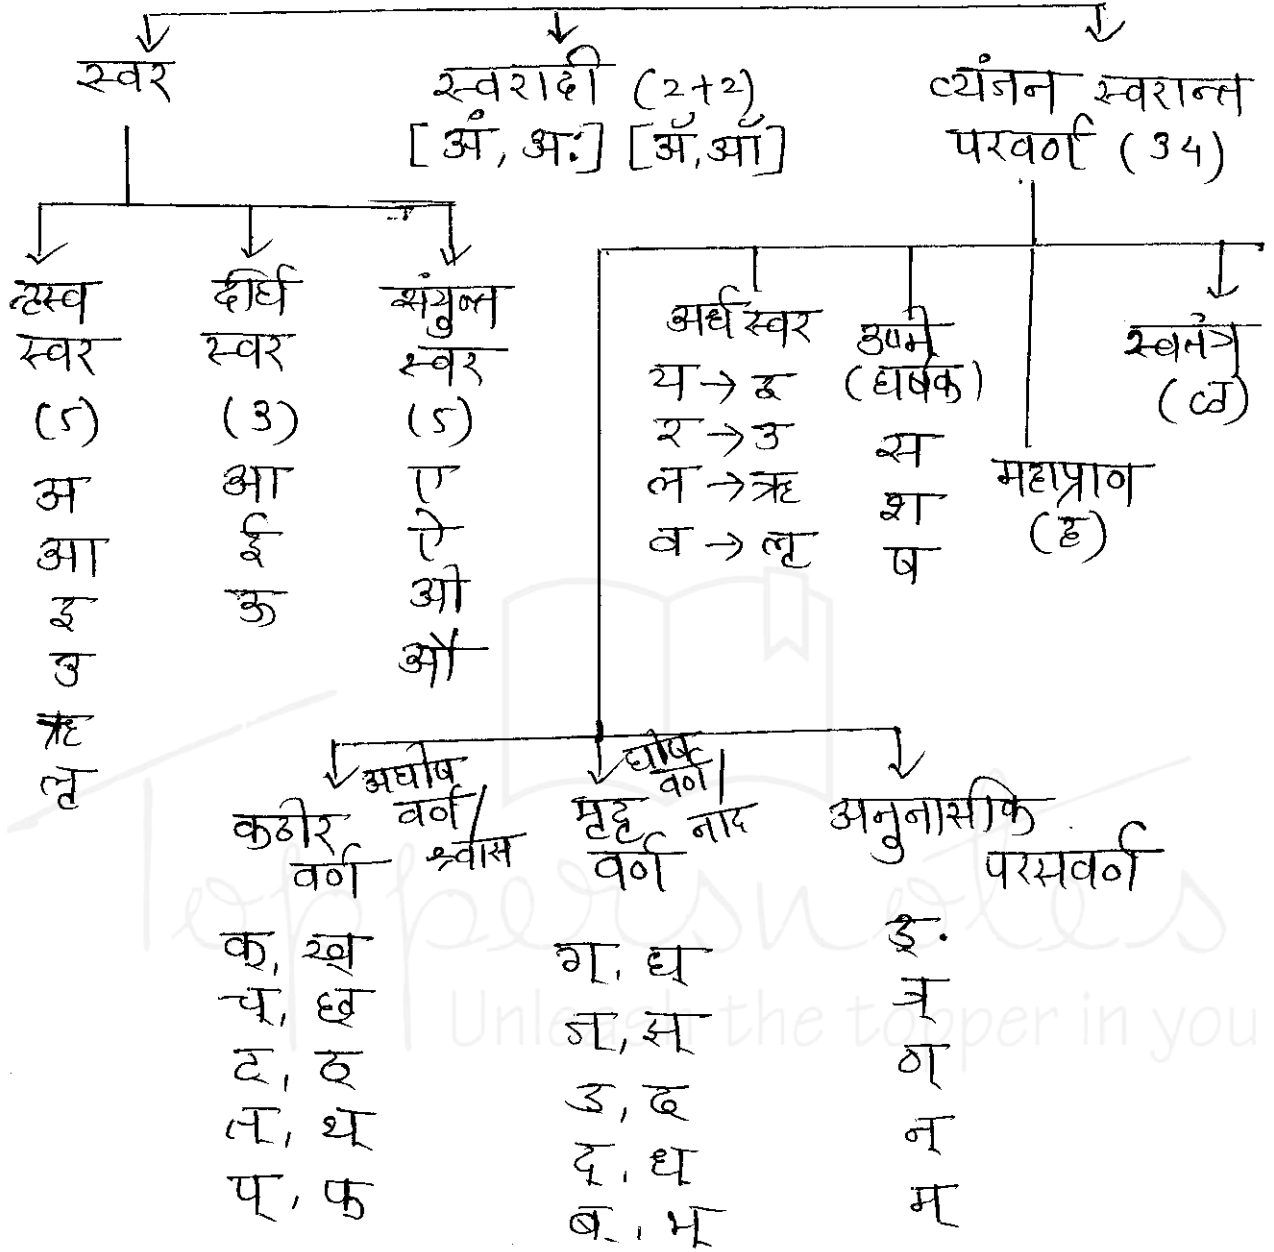 स्वर
स्वरादी (2+2)
[अं, अः] [अॅ, ऑ]
व्यंजन स्वरान्त
परवर्ण (34)
ह्रस्व
स्वर
(5)
अ
आ
इ
उ
ऋ
लृ
दीर्घ
स्वर
(3)
आ
ई
ऊ
संयुक्त
स्वर
(5)
ए
ऐ
ओ
औ
अर्धस्वर
य → इ
र → उ
ल → ऋ
व → लृ
उष्मे
(घर्षक)
स
श
ष
महाप्राण
(ह)
स्वतंत्र
(ळ)
कठोर
वर्ण
अघोष
वर्ण/
श्वास
क्, ख्
च्, छ्
ट्, ठ्
त्, थ्
प्, फ्
मृदू
वर्ण
घोष
वर्ण/
नाद
ग्, घ्
ज्, झ्
ड, ढ
द्, ध
ब्, भ्
अनुनासीक
परसवर्ण
ङ
ञ्
ण्
न्
म्
Toppersnotes
Unleash the topper in you